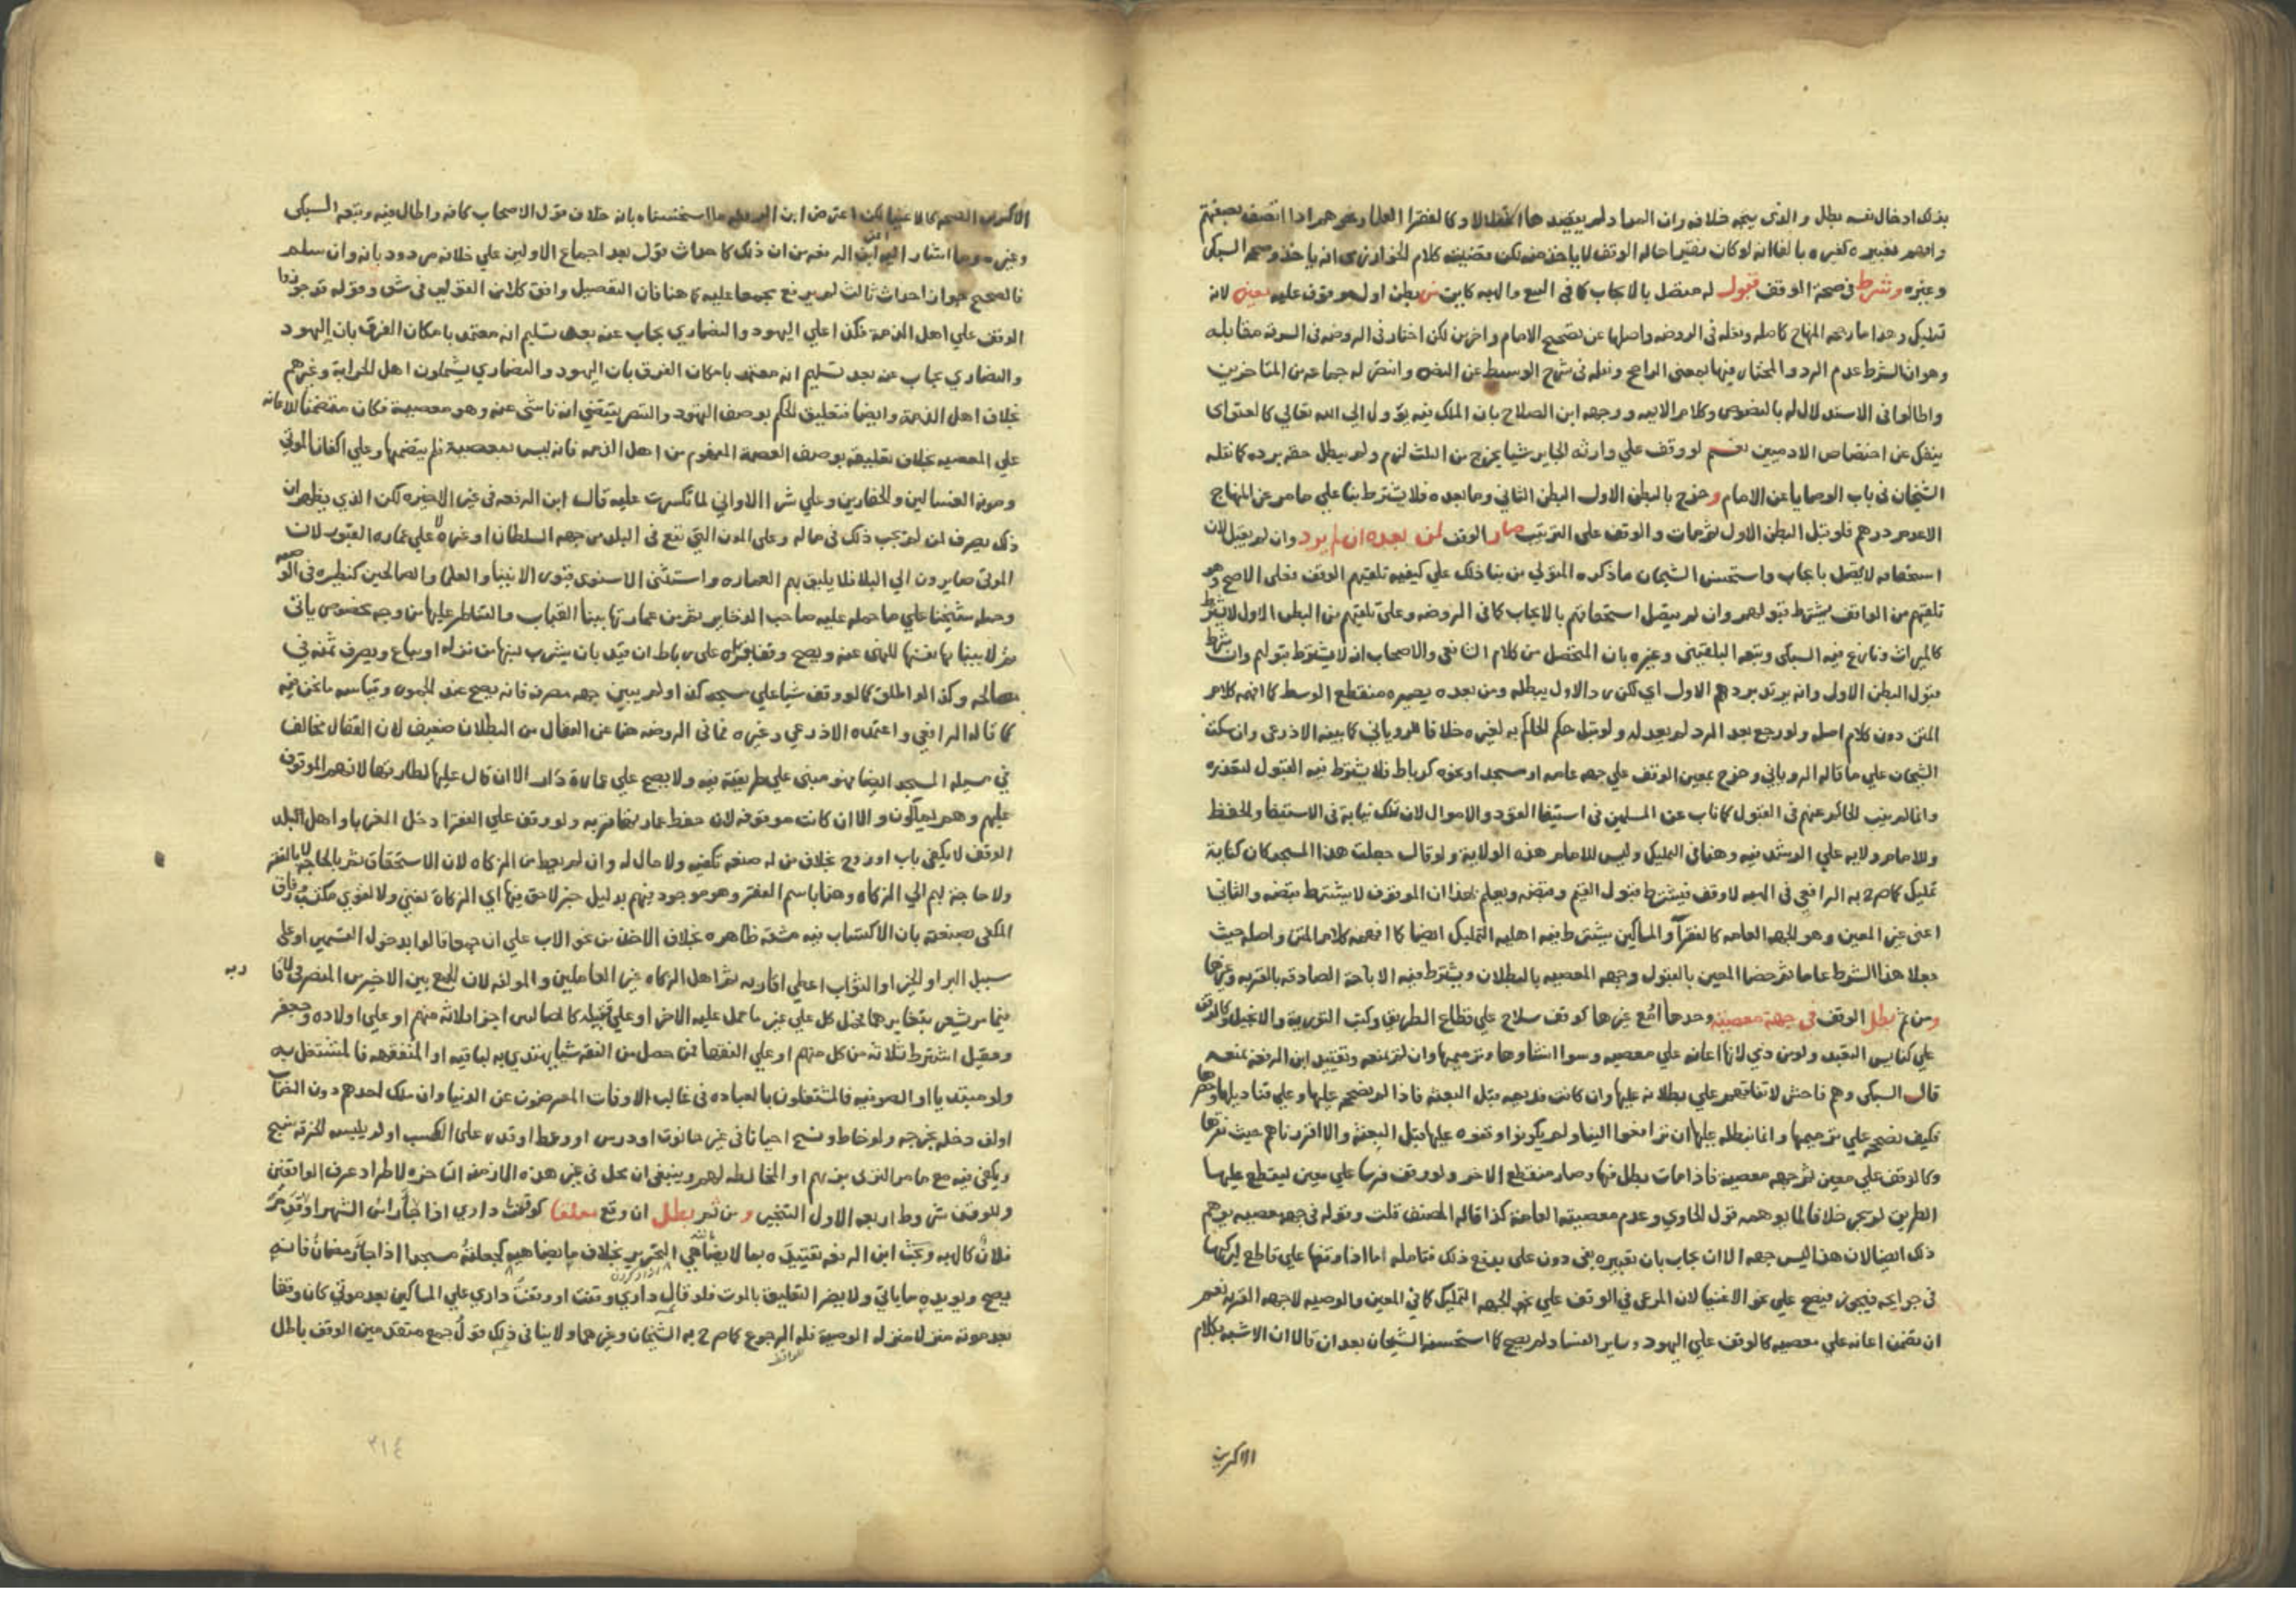 بذلك ادخال نفسه بطل والذي يتجه خلافه وان العباد لم يقصد بها الاولاد كالفقرا العلما وغيرهم اذا اتصف بصفتهم
وافهم تعبيره كغيره بالفا انه لو كان فقيرا حالة الوقف لا ياخذ منه لكن قضية كلام الخوارزمي انه ياخذ وصححه السبكي
وغيره وشرط في صحة الوقف قبول له متصل بالايجاب كما في البيع والهبة كاين من بطن اول موقوف عليه معين لانه
تمليك وهذا ما رجحه المنهاج كاصله ونقله في الروضة واصلها عن تصحيح الامام واخرين لكن اختار في الروضة في السرقة مقابله
وهو ان الشرط عدم الرد والمختار فيها بمعنى الراجح ونقله في شرح الوسيط عن النص وانتصر له جماعة من المتاخرين
واطالوا في الاستدلال له بالنصوص وكلام الايمة ووجهه ابن الصلاح بان الملك فيه يؤول الي الله تعالي كالعتق اي
ينفك عن اختصاص الادميين نعم لو وقف علي وارثه الجايز شيا يخرج من الثلث لزم ولم يبطل حقه برده كما نقله
الشيخان في باب الوصايا عن الامام وخرج بالبطن الاول البطن الثاني وما بعده فلا يشترط بنا علي ما مر عن المنهاج
الاعدم ردهم فلو قبل البطن الاول ثم مات والوقف على الترتيب صار الوقف لمن بعده ان لم يرد وان لم يقبل لان
استحقاقه لا يتصل بايجاب واستحسن الشيخان ما ذكره المتولي من بنا ذلك علي كيفية تلقيهم الوقف فعلى الاصح وهو
تلقيهم من الواقف يشترط قبولهم وان لم يتصل استحقاقهم بالايجاب كما في الروضة وعلى تلقيهم من البطن الاول لا يشترط
كالميراث ونازع فيه السبكي وتبعه البلقيني وغيره بان المتحصل من كلام الشافعي والاصحاب انه لا يشترط قبولهم وان شرط
قبول البطن الاول وانه يرتد بردهم الاول اي لكن رد الاول يبطله ومن بعده يصيره منقطع الوسط كما افهمه كلام
المتن دون كلام اصله ولو رجع بعد الرد لم يعد له ولو قبل حكم الحاكم به لغيره خلافا للروياني كما بينه الاذرعي وان سكت
الشيخان علي ما قاله الروياني وخرج بمعين الوقف علي جهة عامة او مسجد او نحوه كرباط فلا يشترط فيه القبول لتعذره
وانما لم ينب الحاكم عنهم في القبول كما ناب عن المسلمين في استيفا القود والاموال لان تلك نيابة في الاستيفا والحفظ
وللامام ولاية علي الرشد فيه وهنا في التمليك وليس للامام هذه الولاية ولو قال جعلت هذا المسجد كان كناية
تمليك كما صرح به الرافعي في الهبة لا وقف فيشترط قبول القيم وقبضه ويعلم بهذا ان الموقوف لا يشترط قبضه والثاني
اعني غير المعين وهو الجهة العامة كالفقرا والمساكين يشترط فيه اهلية التمليك ايضا كما افهمه كلام المتن واصله حيث
جعلا هذا الشرط عاما ثم خصا المعين بالقبول وجهة المعصية بالبطلان ويشترط فيه الاباحة الصادقة بالقربة وغيرها
ومن ثم بطل الوقف في جهة معصية وحدها او مع غيرها كوقف سلاح علي قطاع الطريق وكتب التورية والانجيل وكالوقف
علي كنايس التعبد ولو من ذمي لانها اعانة علي معصية وسوا انشاوها وترميمها وان لم نمنعه وتقييد ابن الرفعة بمنعه
قال السبكي وهم فاحش لاتفاقهم علي بطلانه عليها وان كانت قديمة قبل البعثة فاذا لم نصححه عليها وعلي قناديلها وحصرها
فكيف نصححه علي ترميمها وانما نبطله عليها ان ترافعوا الينا ولم يكونوا وقفوه عليها قبل البعثة والا اقررناهم حيث نقرها
وكالوقف علي معين ثم جهة معصية فاذا مات بطل فيها وصار منقطع الاخر ولو وقف فرسا علي معين ليقطع عليها
الطريق لم يجز خلافا لما يوهمه قول الحاوي وعدم معصيته العامة كذا قاله المصنف قلت وقوله في جهة معصية يوهم
ذلك ايضا لان هذا ليس جهة الا ان يجاب بان تعبيره بفي دون على يدفع ذلك فتامله اما اذا وقفها علي قاطع ليركبها
في حوايجه فيجوز فيصح علي نحو الاغنيا لان المرعي في الوقف علي نحو الجهة التمليك كما في المعين والوصية لا جهة القربة نعم
ان تضمن اعانة علي معصية كالوقف علي اليهود وساير الفساد لم يصح كما استحسنه الشيخان بعد ان قالا ان الاشبه بكلام
الاكثرين
الاكثرين الصحة كالاغنيا لكن اعترض ابن الرفعة ما استحسناه بانه خلاف قول الاصحاب كافة واطال فيه وتبعه السبكي
وغيره وما اشار اليه ابن الرفعة من ان ذلك كاحداث قول بعد اجماع الاولين علي خلافه مردود بانه وان سلم
فالصحيح جواز احداث ثالث لم يرفع مجمعا عليه كما هنا فان التفصيل وافق كلا من القولين في شق وقوله قد جوزوا
الوقف علي اهل الذمة فكذا علي اليهود والنصاري يجاب عنه بعد تسليم انه معتمد بامكان الفرق بان اليهود
والنصاري يجاب عنه بعد تسليم انه معتمد بامكان الفرق بان اليهود والنصاري يشملون اهل الحرابة وغيرهم
بخلاف اهل الذمة وايضا فتعليق الحكم بوصف التهود والتنصر يقتضي انه ناشئ عنه وهو معصية فكان متضمنا للاعانة
علي المعصية بخلاف تعليقه بوصف العصمة المفهوم من اهل الذمة فانه ليس بمعصية فلم يتضمنها وعلي اكفان الموتي
ومونة الغسالين والحفارين وعلي شرا الاواني لما تكسرت عليه قال ابن الرفعة في غير الاخيرة لكن الذي يظهر ان
ذلك يصرف لمن لم يجب ذلك في ماله وعلى المون التي تقع في البلد من جهة السلطان او غيره لا علي عمارة القبور لان
الموتي صايرون الي البلا فلا يليق بهم العمارة واستثنى الاسنوي قبور الانبيا والعلما والصالحين كنظيره في الوصية
وحمله شيخنا علي ما حمله عليه صاحب الذخاير بقرينة عمارتها ببنا القباب والقناطر عليها من وجه مخصوص ياتي
ثم لا ببنايها نفسها للنهي عنه ويصح وقف بقرة على رباط ان قيد بان يشرب لبنها من نزله او يباع ويصرف ثمنه في
مصالحه وكذا لو اطلق كما لو وقف شيا علي مسجد كذا ولم يبين جهة مصرفه فانه يصح عند الجمهور وقياسه ما نحن فيه
كما قاله الرافعي واعتمده الاذرعي وغيره فما في الروضة هنا عن القفال من البطلان ضعيف لان القفال مخالف
في مسيلة المسجد ايضا فهو مبني علي طريقته فيه ولا يصح علي عمارة دار الا ان قال عليها لطارقها لانهم الموقوف
عليهم وهم يملكون والا ان كانت موقوفة لان حفظ عمارتها قربة ولو وقف علي الفقرا دخل الغربا واهل البلد
الوقف لا يكفي باب او زوج بخلاف من له صنعة تكفيه ولا مال له وان لم يعط من الزكاة لان الاستحقاق ثم بالحاجة لا بالفقر
ولا حاجة بهم الي الزكاة وهنا باسم الفقر وهو موجود فيهم بدليل خبر لا حق فيها اي الزكاة لغني ولا لقوي مكتسب وفارق
المكفي بصنعته بان الاكتساب فيه مشقة ظاهرة بخلاف الاخذ من نحو الاب علي ان جمعا قالوا بدخول القسمين او علي
سبيل البر او الخير او الثواب اعطي اقاربه ثم اهل الزكاة غير العاملين والمولفة لان الجمع بين الاخيرين المنصرفي لا فا
فيما مر يشعر بتغايرهما فحمل كل علي غير ما حمل عليه الاخر او علي قبيلة كالطالبيين اجزا ثلاثة منهم او علي اولاده وجعفر
وعقيل اشترط ثلاثة من كل منهم او علي الفقها فمن حصل من الفقه شيا يهتدي به لباقيه او المتفقهة فالمشتغل به
ولو مبتديا او الصوفية فالمشتغلون بالعبادة في غالب الاوقات المعرضون عن الدنيا وان ملك احدهم دون النصاب
او لم يف دخله بخرجه ولو خاط ونسج احيانا في غير حانوت او درس او وعظ او قدر على الكسب او لم يلبسه الخرقة شيخ
ويكفي فيه مع ما مر التزي بزيهم او المخالطة لهم وينبغي ان محل في غير هذه الازمنة المتاخرة لاطراد عرف الواقفين
وللوقف شروط اربعة الاول التنجيز ومن ثم بطل ان وقع معلقا كوقفت داري اذا جا راس الشهر او قدم
فلان كالهبة وبحث ابن الرفعة تقييده بما لا يضاهي التحرير بخلاف ما يضاهيه كجعلته مسجدا اذا جا رمضان فانه
يصح ويويده ما ياتي ولا يضر التعليق بالموت فلو قال داري وقفت او وقفت داري علي المساكين بعد موتي كان وقفا
بعد موته منزلا منزلة الوصية فله الرجوع كما صرح به الشيخان وغيرهما ولا ينافي ذلك قول جمع متقدمين الوقف باطل
٣١٤